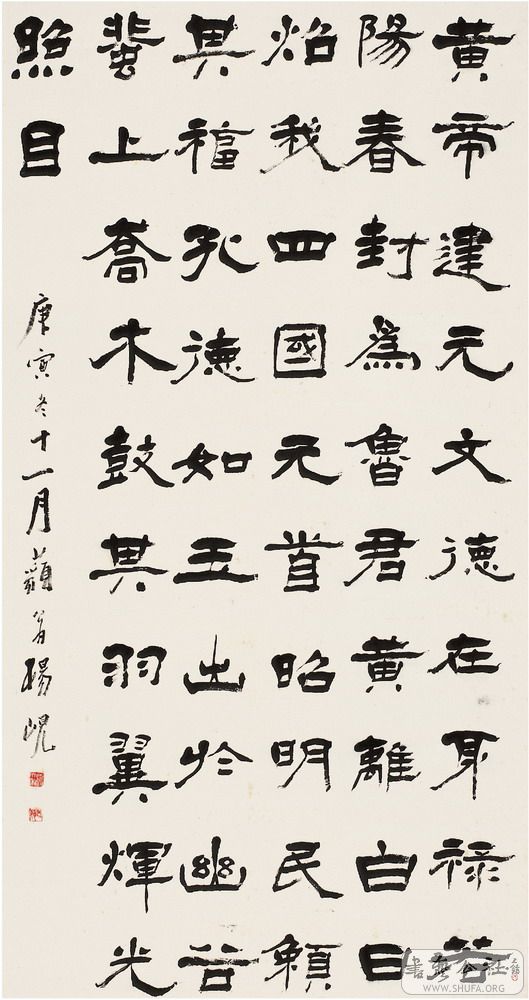 黄帝建元文德在身禄若
陽春封為魯君黄離白日
炤我四國元首昭明民賴
其福孔德如玉出於幽谷
蜚上喬木鼓其羽翼煇光
照目
庚寅冬十一月藐翁楊峴
書藝公社
WWW.SHUFA.ORG